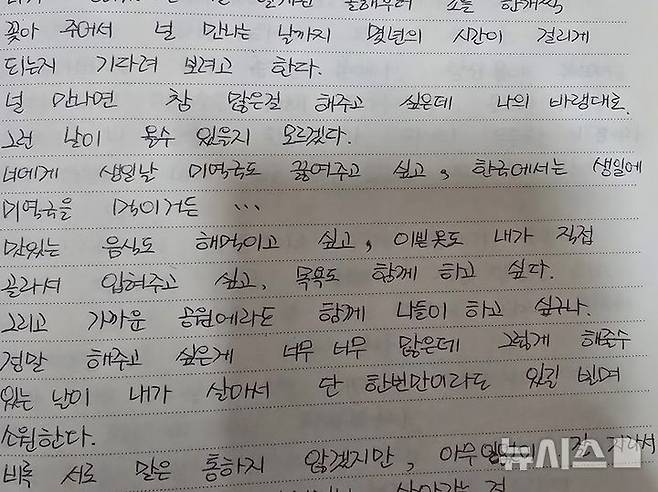 올해부터 초를 한개씩
꽂아 주어서 널 만나는 날까지 몇년의 시간이 걸리게
되는지 기다려 보려고 한다.
널 만나면 참 많은걸 해주고 싶은데 나의 바램대로
그런 날이 올수 있을지 모르겠다.
너에게 생일날 미역국도 끓여주고 싶고, 한국에서는 생일에
미역국을 먹이거든 ...
맛있는 음식도 해먹이고 싶고, 이쁜옷도 내가 직접
골라서 입혀주고 싶고, 목욕도 함께 하고 싶다.
그리고 가까운 공원에라도 함께 나들이 하고 싶구나.
정말 해주고 싶은게 너무 너무 많은데 그렇게 해줄수
있는 날이 내가 살아서 단 한번만이라도 있길 빌며
소원한다.
비록 서로 말은 통하지 않겠지만, 아무 잘 자라서
뉴시스
살아가는 것